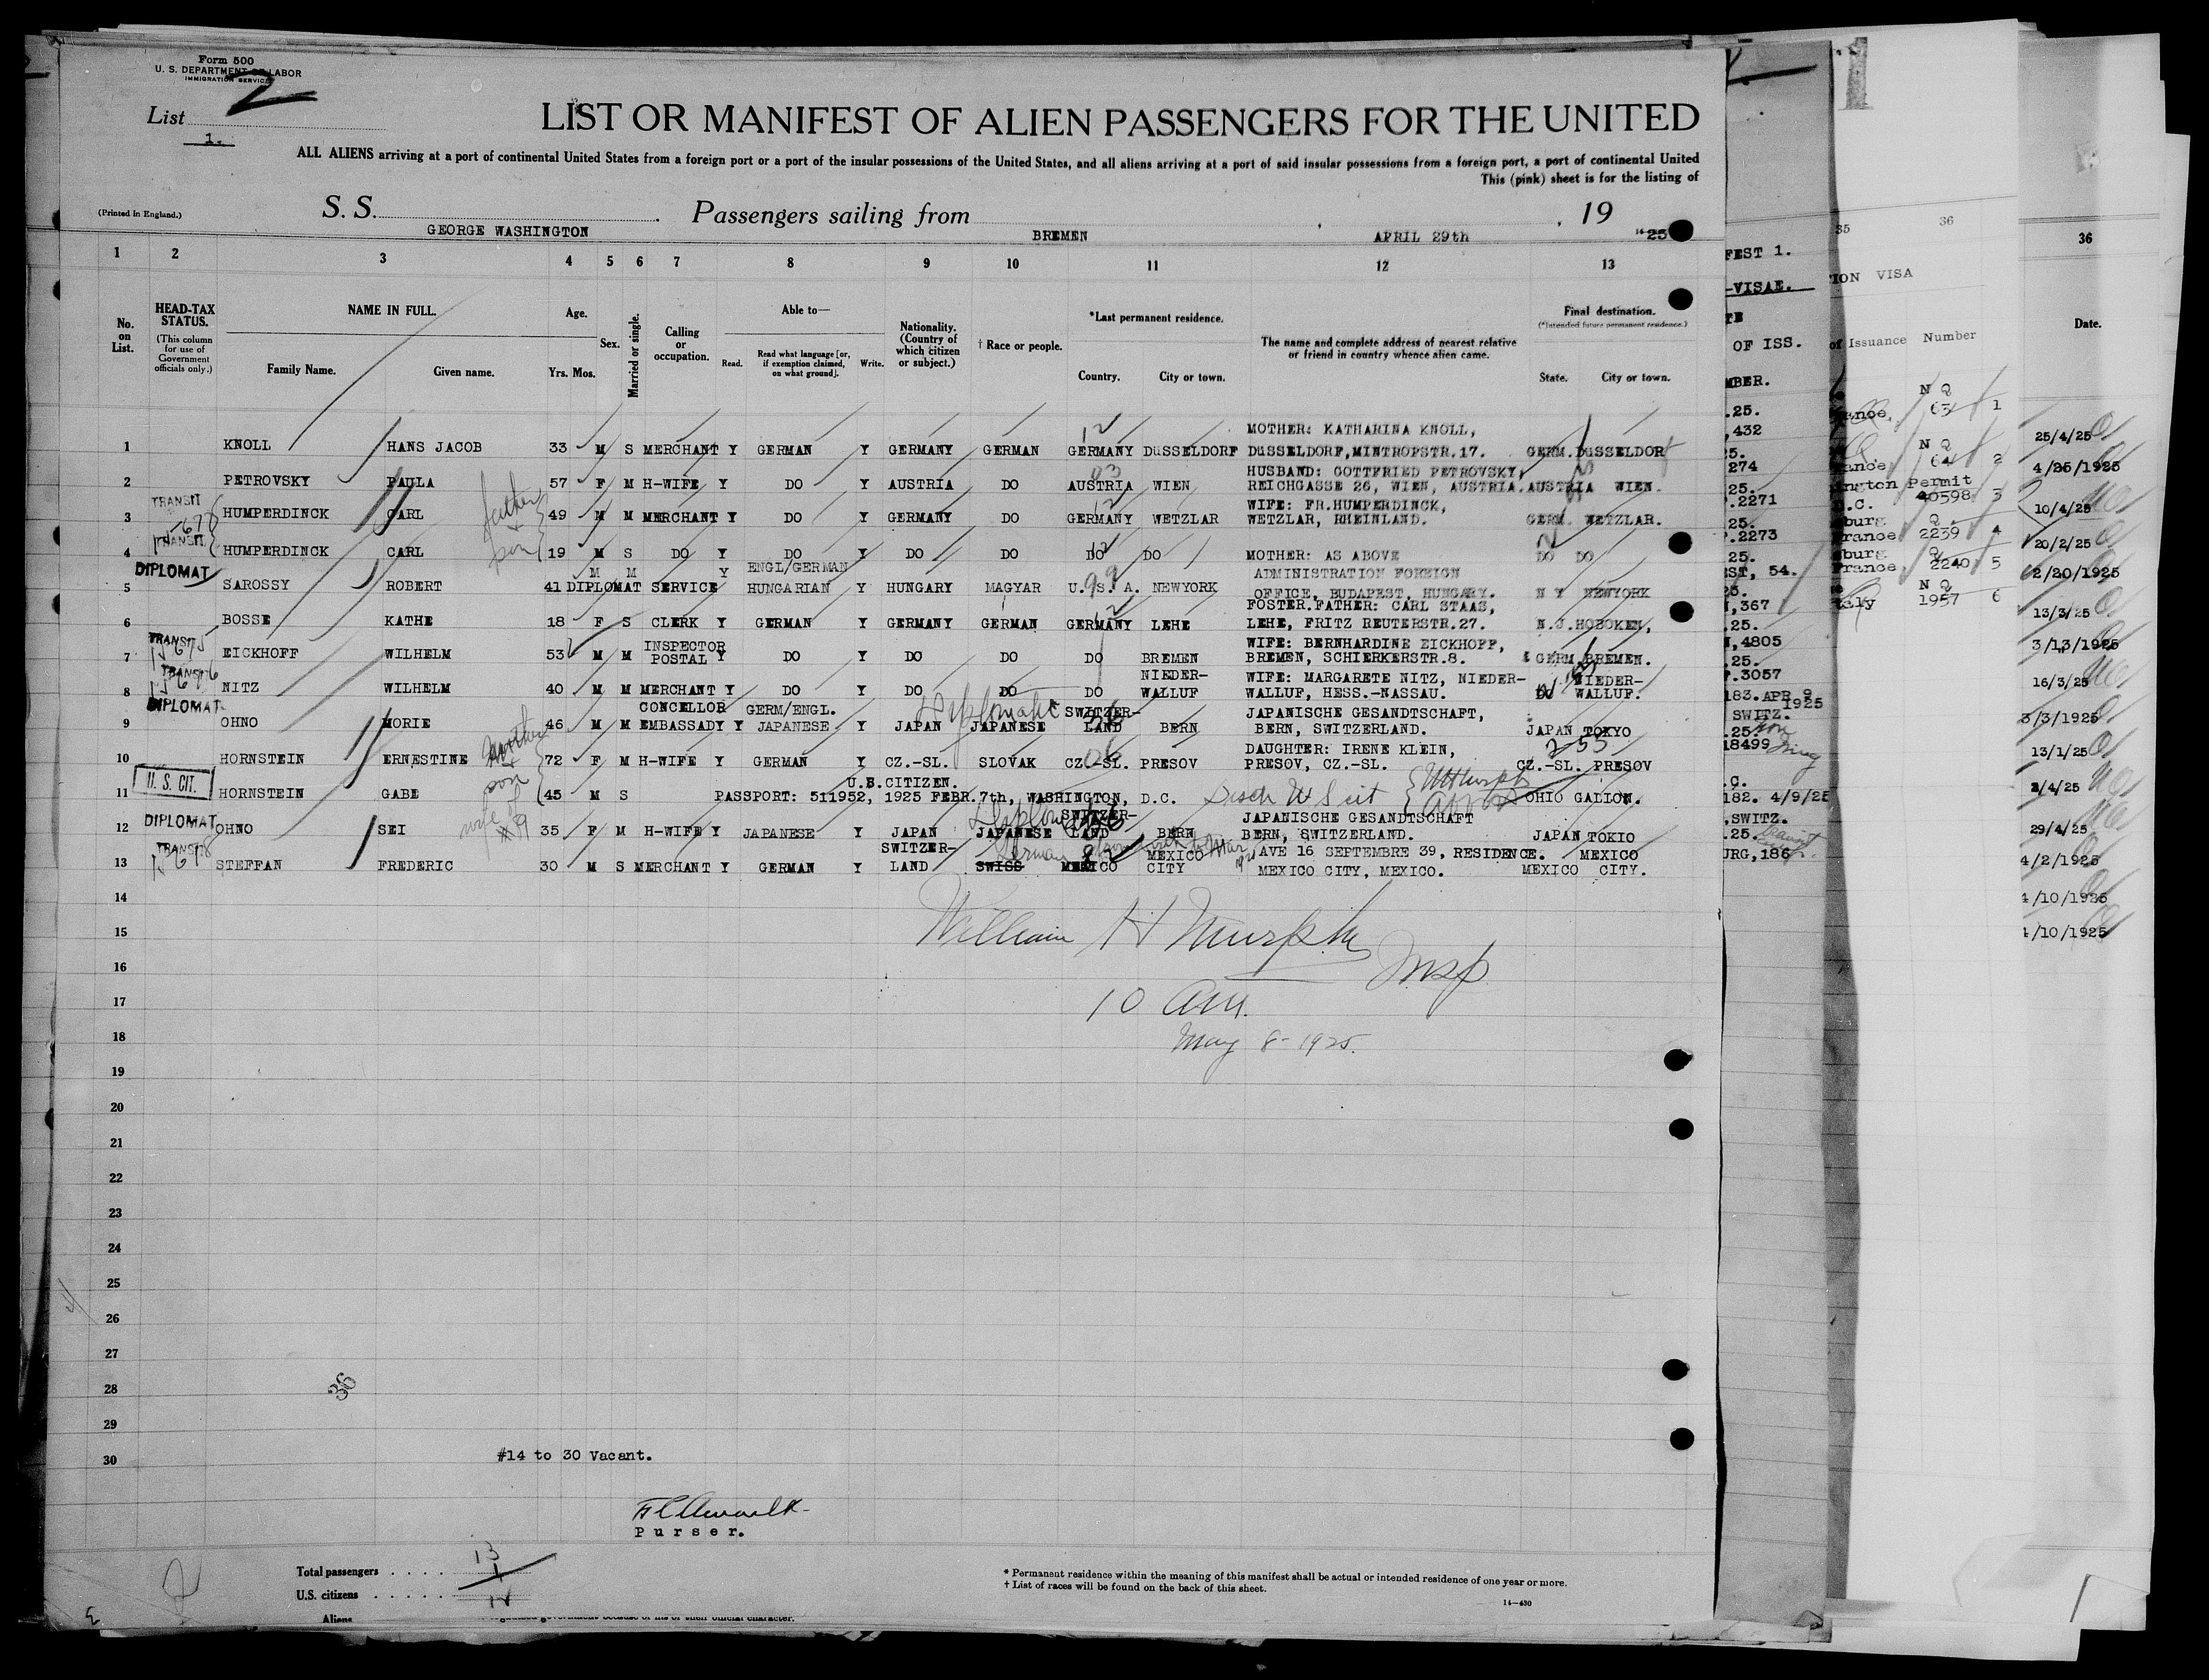 Form 500
U. S. DEPARTMENT OF LABOR
IMMIGRATION SERVICE
2
List
1.
LIST OR MANIFEST OF ALIEN PASSENGERS FOR THE UNITED
ALL ALIENS arriving at a port of continental United States from a foreign port or a port of the insular possessions of the United States, and all aliens arriving at a port of said insular possessions from a foreign port, a port of continental United
This (pink) sheet is for the listing of
(Printed in England.)
S. S. GEORGE WASHINGTON Passengers sailing from BREMEN , APRIL 29th , 19 25
1 2 3 4 5 6 7 8 9 10 11 12 13
No. on List.
HEAD-TAX STATUS.
(This column for use of Government officials only.)
NAME IN FULL.
Family Name. Given name.
Age.
Yrs. Mos.
Sex.
Married or single.
Calling or occupation.
Able to—
Read. Read what language [or, if exemption claimed, on what ground]. Write.
Nationality. (Country of which citizen or subject.)
† Race or people.
*Last permanent residence.
Country. City or town.
The name and complete address of nearest relative or friend in country whence alien came.
Final destination.
(*Intended future permanent residence.)
State. City or town.
MOTHER: KATHARINA KNOLL,
1 KNOLL HANS JACOB 33 M S MERCHANT Y GERMAN Y GERMANY GERMAN GERMANY DUSSELDORF DUSSELDORF, MINTROPSTR.17. GERM. DUSSELDORF
HUSBAND: GOTTFRIED PETROVSKY,
2 PETROVSKY PAULA 57 F M H-WIFE Y DO Y AUSTRIA DO AUSTRIA WIEN REICHGASSE 26, WIEN, AUSTRIA. AUSTRIA WIEN.
TRANSIT
WIFE: FR.HUMPERDINCK,
3 HUMPERDINCK CARL father + son 49 M M MERCHANT Y DO Y GERMANY DO GERMANY WETZLAR WETZLAR, RHEINLAND. GERM. WETZLAR.
TRANSIT
4 HUMPERDINCK CARL 19 M S DO Y DO Y DO DO DO DO MOTHER: AS ABOVE DO DO
DIPLOMAT
M M Y ENGL/GERMAN ADMINISTRATION FOREIGN
5 SAROSSY ROBERT 41 DIPLOMAT SERVICE HUNGARIAN Y HUNGARY MAGYAR U.S.A. NEWYORK OFFICE, BUDAPEST, HUNGARY. N Y NEWYORK
FOSTER.FATHER: CARL STAAS,
6 BOSSE KATHE 18 F S CLERK Y GERMAN Y GERMANY GERMAN GERMANY LEHE LEHE, FRITZ REUTERSTR.27. N.J. HOBOKEN,
TRANSIT
INSPECTOR WIFE: BERNHARDINE EICKHOFF,
7 EICKHOFF WILHELM 53 M M POSTAL Y DO Y DO DO DO BREMEN BREMEN, SCHIERKERSTR.8. GERM. BREMEN.
TRANSIT
NIEDER- WIFE: MARGARETE NITZ, NIEDER- NIEDER-
8 NITZ WILHELM 40 M M MERCHANT Y DO Y DO DO DO WALLUF WALLUF, HESS.-NASSAU. DO WALLUF.
DIPLOMAT
CONCELLOR GERM/ENGL. Diplomatic SWITZER- JAPANISCHE GESANDTSCHAFT,
9 OHNO MORIE 46 M M EMBASSADY Y JAPANESE Y JAPAN JAPANESE LAND BERN BERN, SWITZERLAND. JAPAN TOKYO
DAUGHTER: IRENE KLEIN,
10 HORNSTEIN ERNESTINE Mother + son 72 F M H-WIFE Y GERMAN Y CZ.-SL. SLOVAK CZ.-SL. PRESOV PRESOV, CZ.-SL. CZ.-SL. PRESOV
U. S. CIT.
U.S.CITIZEN.
11 HORNSTEIN GABE 45 M S PASSPORT: 511952, 1925 FEBR.7th, WASHINGTON, D.C. OHIO GALION.
DIPLOMAT
wife of #9
SWITZER- JAPANISCHE GESANDTSCHAFT
12 OHNO SEI 35 F M H-WIFE Y JAPANESE Y JAPAN JAPANESE LAND BERN BERN, SWITZERLAND. JAPAN TOKIO
TRANSIT
SWITZER- German MEXICO AVE 16 SEPTEMBRE 39, RESIDENCE. MEXICO
13 STEFFAN FREDERIC 30 M S MERCHANT Y GERMAN Y LAND SWISS MEXICO CITY MEXICO CITY, MEXICO. MEXICO CITY.
14
15
16
17
18
19
20
21
22
23
24
25
26
27
28
29
30
William H Murphy
Insp.
10 am.
May 8-1925.
36
#14 to 30 Vacant.
Purser.
Total passengers . . . . 13
U.S. citizens . . . . . . 1
Aliens 12
* Permanent residence within the meaning of this manifest shall be actual or intended residence of one year or more.
† List of races will be found on the back of this sheet.
14—430
FEST 1.
-VISAE.
OF ISS.
MBER.
.25.
,432
25.
274
.25.
.2271
.25.
.2273
.25.
ST, 54.
25.
,367
.25.
,4805
.25.
.3057
183. APR 9 1925
SWITZ.
.25.
18499
182. 4/9/25
,SWITZ.
.25.
URG,186
35 36
ION VISA
of Issuance Number
N Q
63 1
N Q
64 2
ington Permit
D.C. 40598 3
burg Q.
rance 2239 4
burg Q.
rance 2240 5
N Q
taly 1957 6
36
Date.
25/4/25
4/25/1925
10/4/25
20/2/25
2/20/1925
13/3/25
3/13/1925
16/3/25
3/3/1925
13/1/25
29/4/25
4/2/1925
4/10/1925
4/10/1925